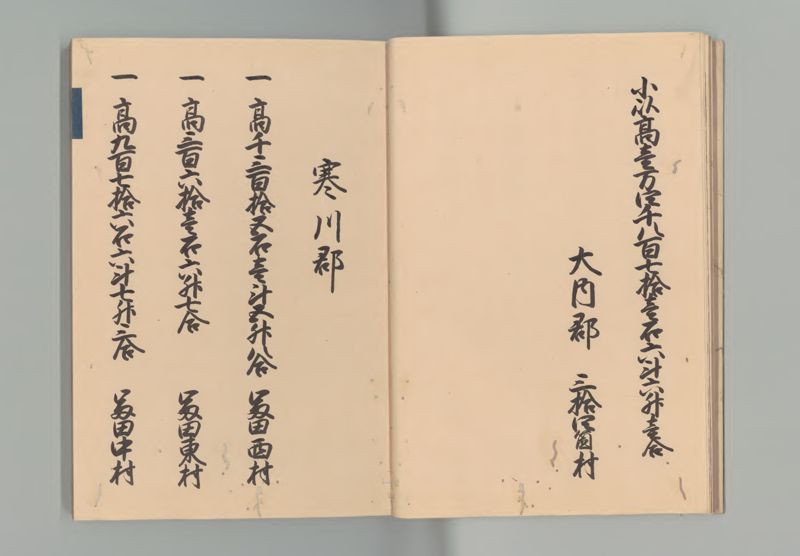 小以高壱万四千八百七拾壱石六斗六升壱合
大内郡 三拾四箇村
寒川郡
一 高千三百拾五石壱斗五升八合 冨田西村
一 高三百六拾壱石六升七合 冨田東村
一 高九百七拾六石六斗七升三合 冨田中村